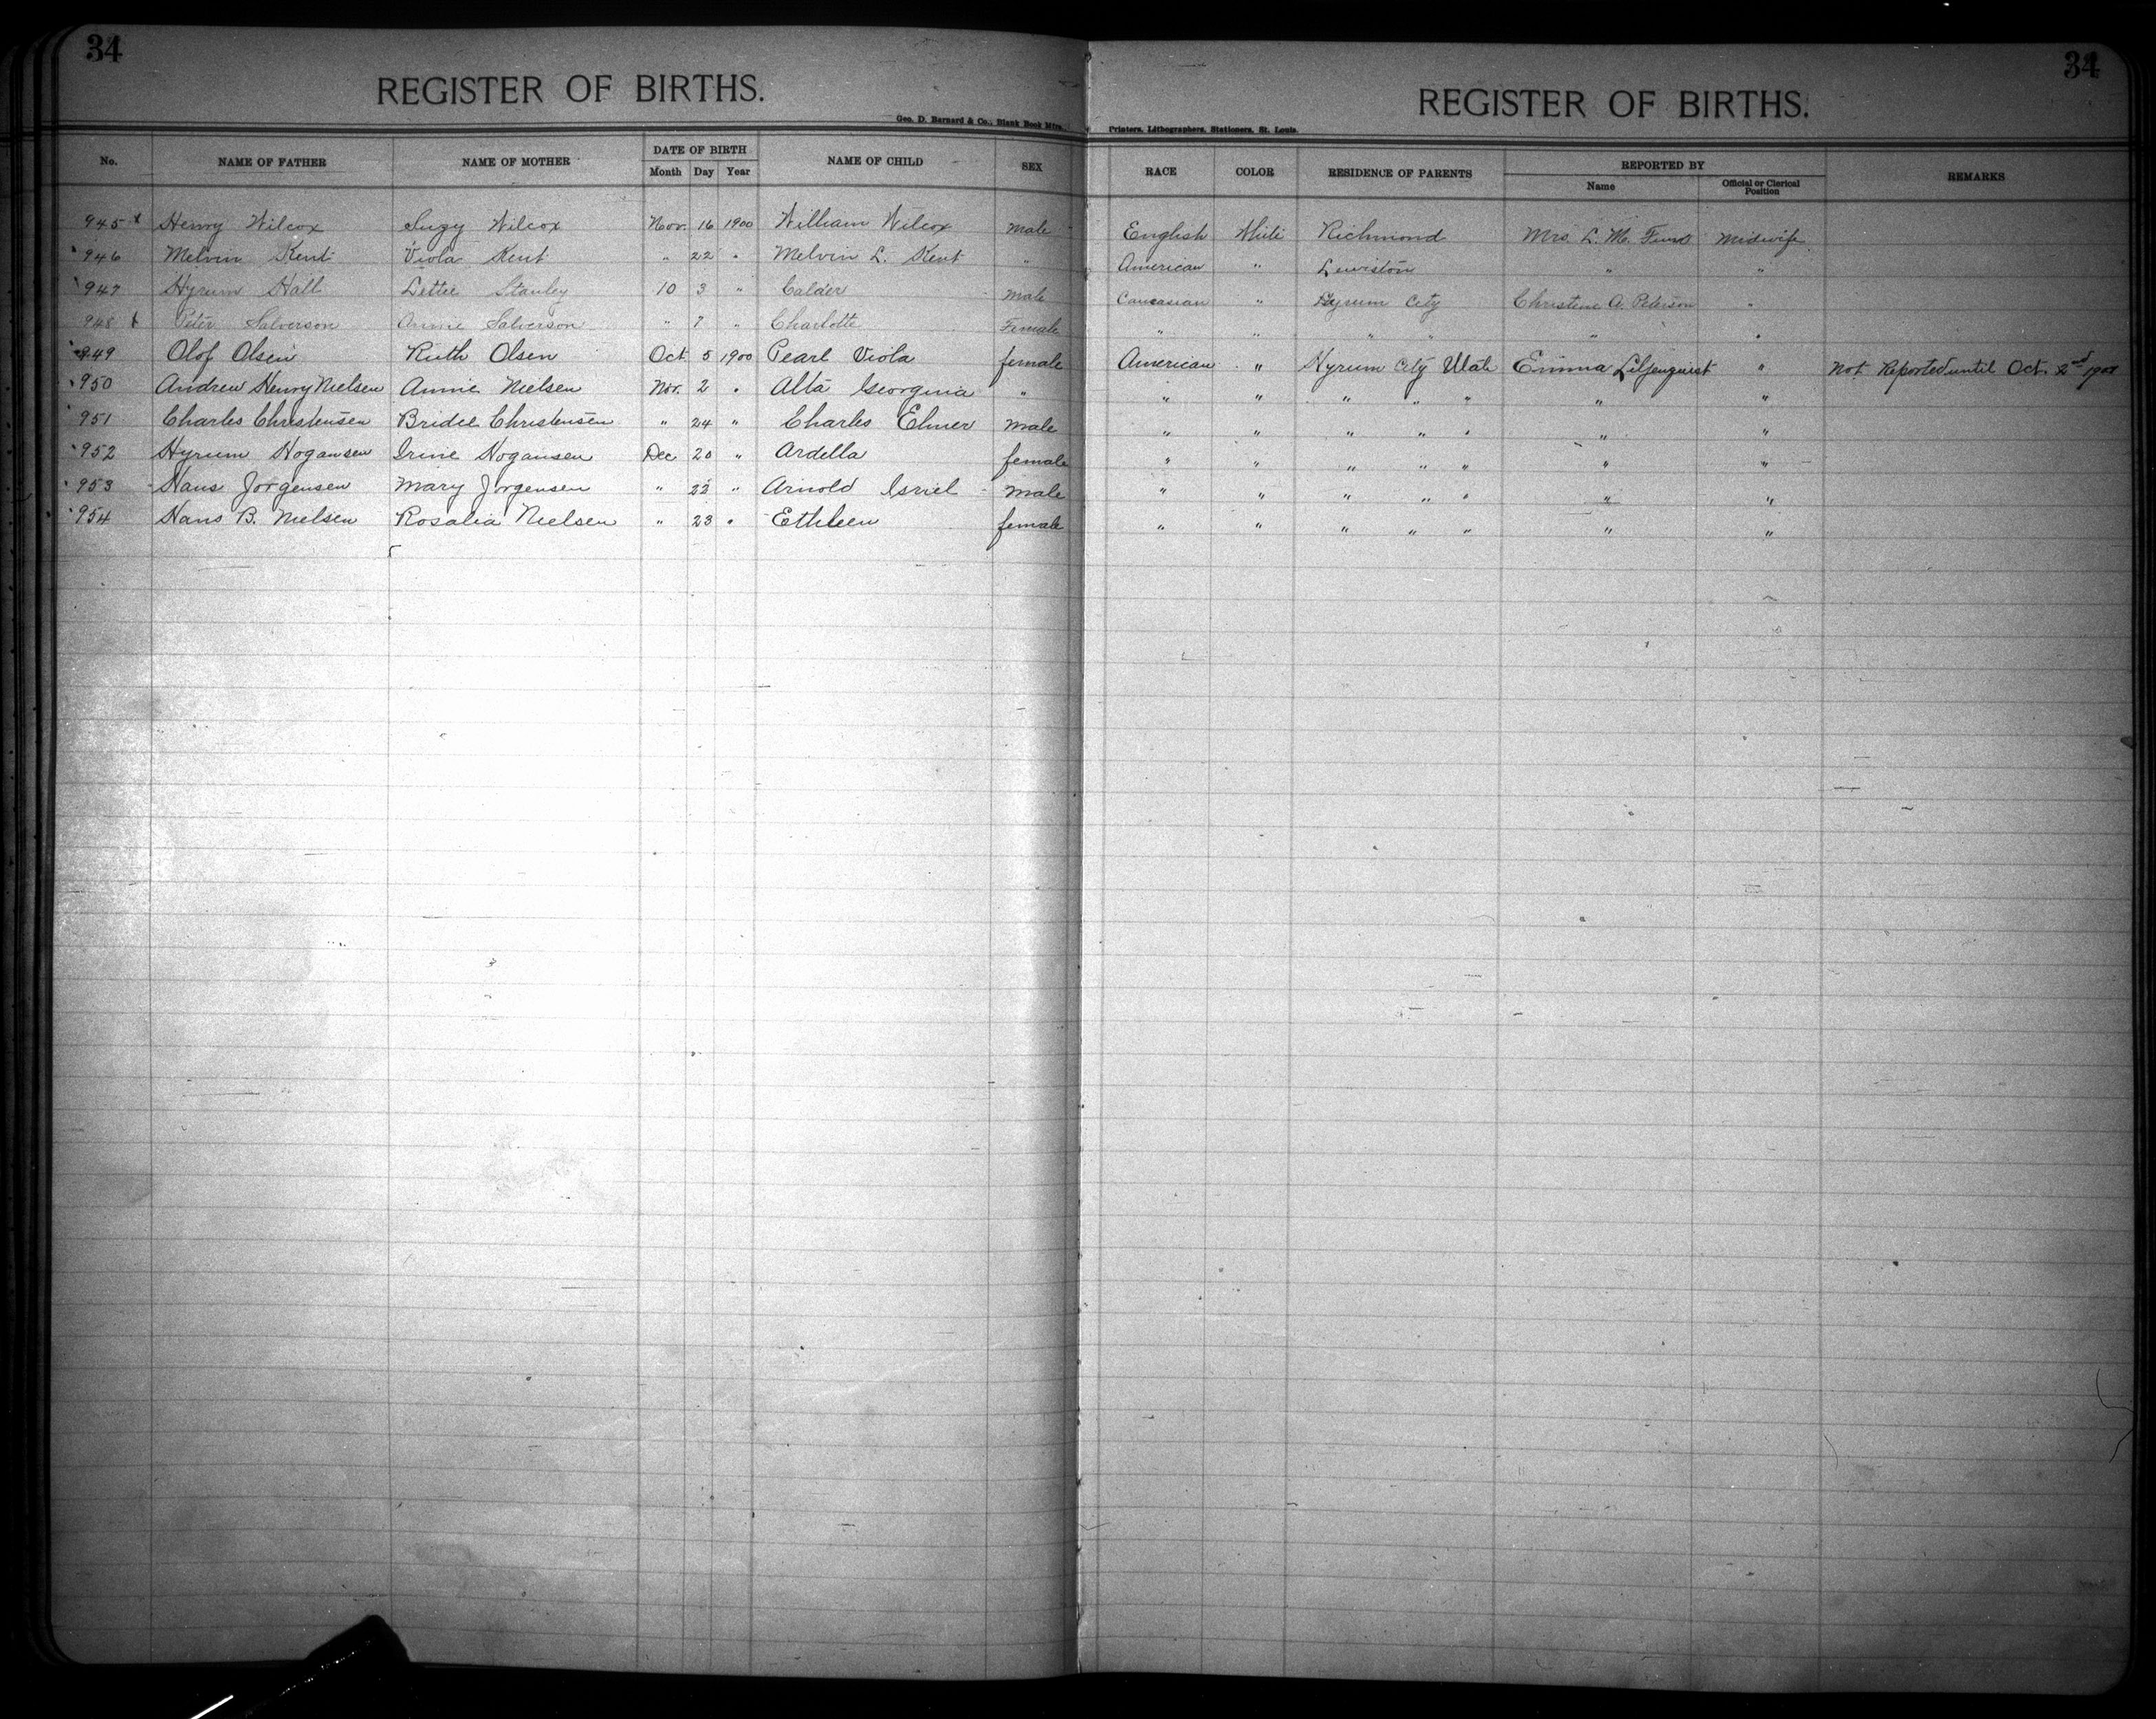 34
REGISTER OF BIRTHS.
Geo. D. Barnard & Co., Blank Book Mfrs.,
34
REGISTER OF BIRTHS.
Printers, Lithographers, Stationers, St. Louis.
No. NAME OF FATHER NAME OF MOTHER DATE OF BIRTH Month Day Year NAME OF CHILD SEX RACE COLOR RESIDENCE OF PARENTS REPORTED BY Name Official or Clerical Position REMARKS
945 x Henry Wilcox Suzy Wilcox Nov. 16 1900 William Wilcox male English White Richmond Mrs. L. M. Midwife
946 Melvin Kent Viola Kent " 22 " Melvin L. Kent " American " Lewiston " "
947 Hyrum Hall Lettie Stanley 10 3 " Calder male Caucasian " Hyrum City Christine A. Peterson "
948 Peter Salverson Annie Salverson " 7 " Charlotte Female " " " " " "
949 Olof Olsen Ruth Olsen Oct 5 1900 Pearl Viola female American " Hyrum City Utah Emma Liljenquist " Not Reported until Oct. 2nd
950 Andrew Henry Nielsen Annie Nielsen Nov. 2 " Alta Georgina " " " " " " " "
951 Charles Christensen Bridee Christensen " 24 " Charles Elmer male " " " " " " "
952 Hyrum Hogansen Irine Hogansen Dec 20 " Ardella female " " " " " " "
953 Hans Jorgensen Mary Jorgensen " 22 " Arnold Isriel male " " " " " " "
954 Hans B. Nielsen Rosalia Nielsen " 23 " Ethleen female " " " " " " "